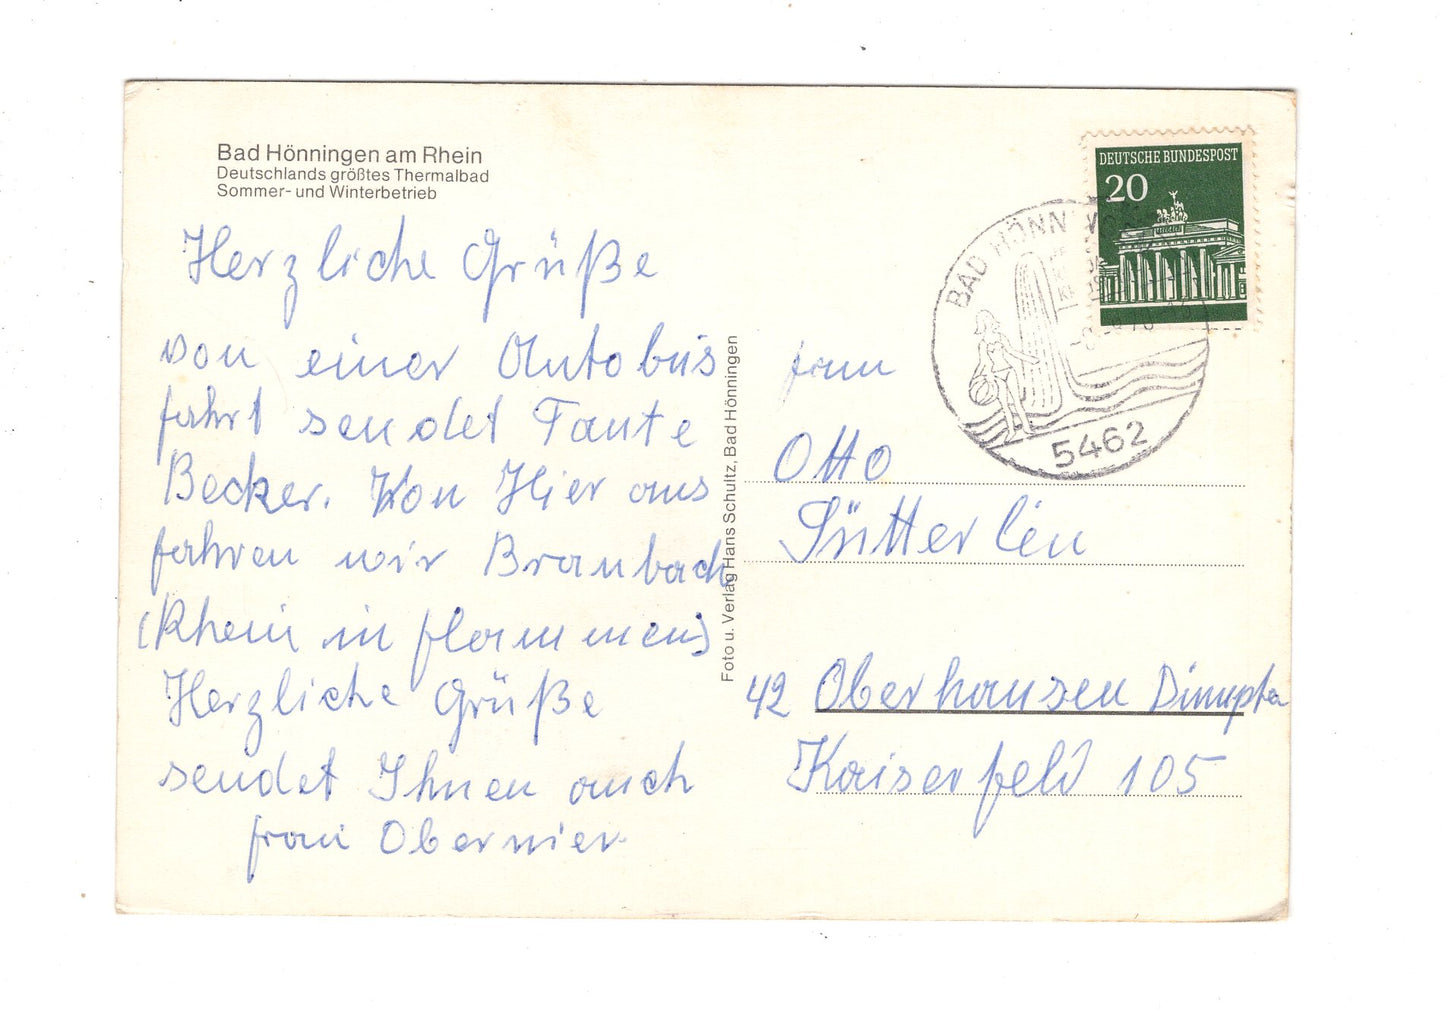 Bad Hönningen am Rhein
Deutschlands größtes Thermalbad
Sommer- und Winterbetrieb
Herzliche Grüße
von einer Autobus
fahrt sendet Tante
Becker. Von Hier aus
fahren wir Braubach
(Rhein in flammen)
Herzliche Grüße
sendet Ihnen auch
frau Obernier
Foto u. Verlag Hans Schultz, Bad Hönningen
DEUTSCHE BUNDESPOST
20
BAD HÖNN
5462
Otto
Sütterlin
42 Oberhausen
Kaiserfeld 105